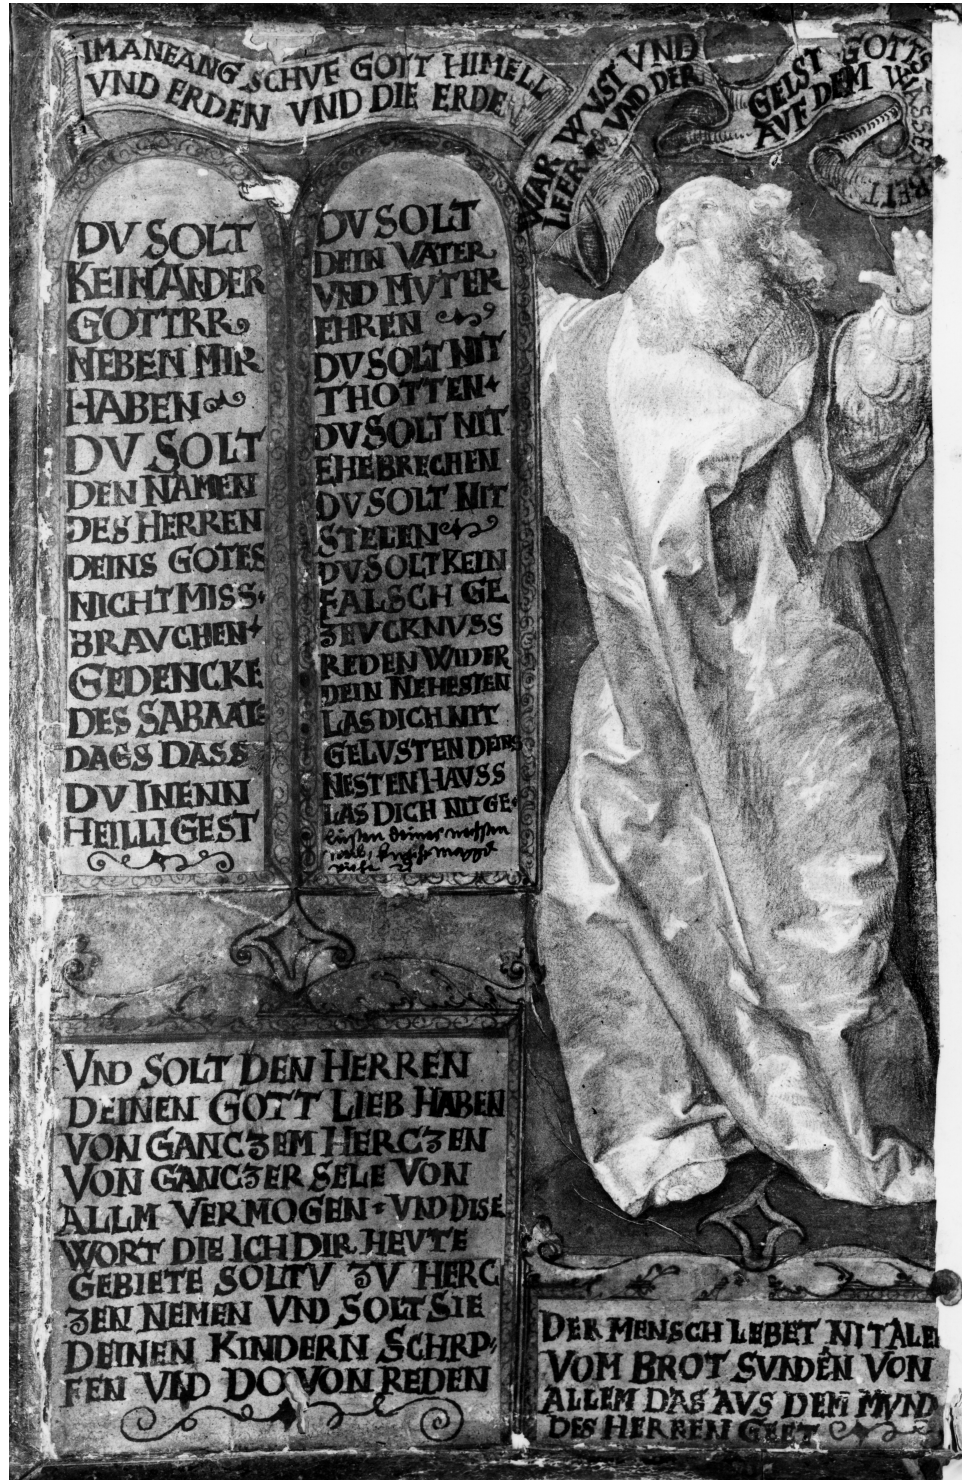 IM ANFANG SCHVF GOTT HIMELL
VND ERDEN VND DIE ERDE
WAR WVST VND
LEER VND DER
GEIST GOTTS
AVF DEM WASSER
DV SOLT
KEIN ANDER
GOTTRR
NEBEN MIR
HABEN
DV SOLT
DEN NAMEN
DES HERREN
DEINS GOTES
NICHT MISS
BRAVCHEN
GEDENCKE
DES SABAATS
DAGS DASS
DV INENN
HEILLIGEST
DV SOLT
DEIN VATER
VND MVTER
EHREN
DV SOLT NIT
THOTTEN
DV SOLT NIT
EHEBRECHEN
DV SOLT NIT
STELEN
DV SOLT KEIN
FALSCH GE
ZEVCKNVSS
REDEN WIDER
DEIN NEHESTEN
LAS DICH NIT
GELVSTEN DEINS
NESTEN HAVSS
LAS DICH NIT GE
lusten deines nechsten
weib, knecht magt
viehe
VND SOLT DEN HERREN
DEINEN GOTT LIEB HABEN
VON GANCZEM HERCZEN
VON GANCZER SELE VON
ALLM VERMOGEN VND DISE
WORT DIE ICH DIR HEVTE
GEBIETE SOLTV ZV HERC
ZEN NEMEN VND SOLT SIE
DEINEN KINDERN SCHRP
FEN VND DO VON REDEN
DER MENSCH LEBET NIT ALEI
VOM BROT SVNDEN VON
ALLEM DAS AVS DEM MVND
DES HERREN GEET